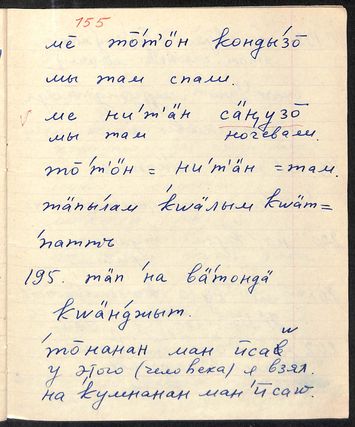 155
ме̄ то̄́т'ӧн кондыʹзо̄
мы там спали.
ме ниʹт'ӓн сӓӊузо̄
мы там ночевали.
то̄́т'ӧн = ниʹт'ӓн = там.
тӓпыʹлам ʹкwӓлым кwӓт=
ʹпатть
195. тӓп ʹна вӓ́тондӓ
кwӓнджыт.
ʹто̄нанан ман ӣсав
w
у этого (человека) я взял.
на ʹкумнанан ман ʹӣсаw.